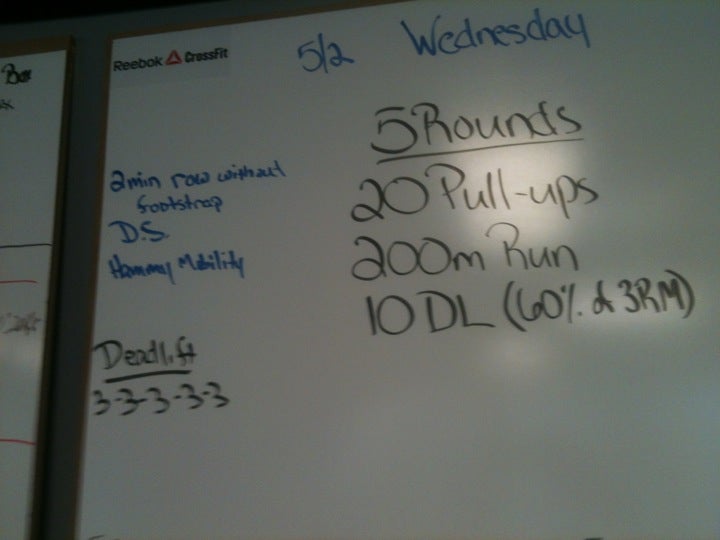 Reebok CrossFit
5/2 Wednesday
2min row without
footstrap
D.S.
Hammy Mobility
Deadlift
3-3-3-3-3
5 Rounds
20 Pull-ups
200m Run
10 DL (60% of 3RM)
Box